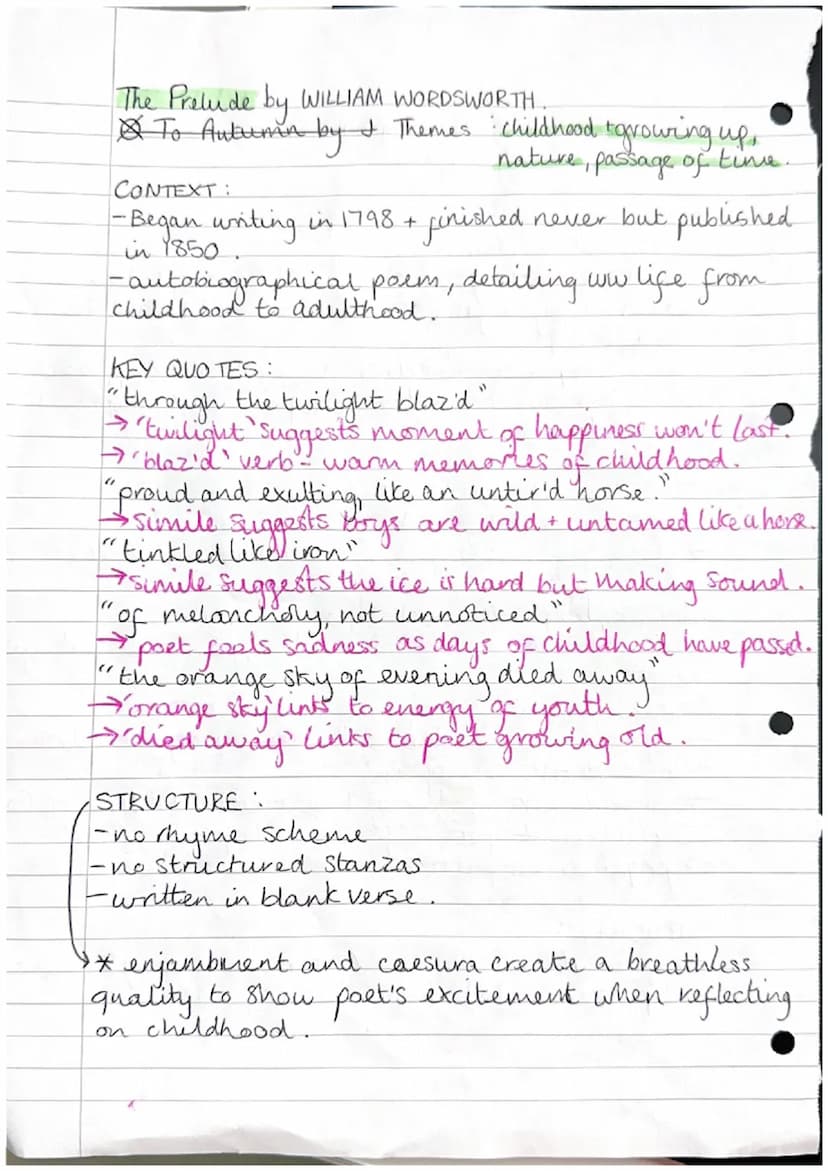 The Prelude by WILLIAM WORDSWORTH.
To Autumn by J Themes : childhood + growing up,
nature, passage of time.
CONTEXT :
- Began writing in 1798 + finished never but published
in 1850 .
- autobiographical poem, detailing ww life from
childhood to adulthood .
KEY QUOTES :
"through the twilight blaz'd"
→ 'twilight' suggests moment of happiness won't last.
→ 'blaz'd' verb - warm memories of childhood.
"proud and exulting, like an untir'd horse."
→ simile suggests boys are wild + untamed like a horse.
"tinkled like iron"
→ simile suggests the ice is hard but making sound.
"of melancholy, not unnoticed"
→ poet feels sadness as days of childhood have passed.
"the orange sky of evening died away"
→ 'orange sky' links to energy of youth.
→ 'died away' links to poet growing old.
STRUCTURE :
- no rhyme scheme
- no structured stanzas
- written in blank verse.
* enjambment and caesura create a breathless
quality to show poet's excitement when reflecting
on childhood.